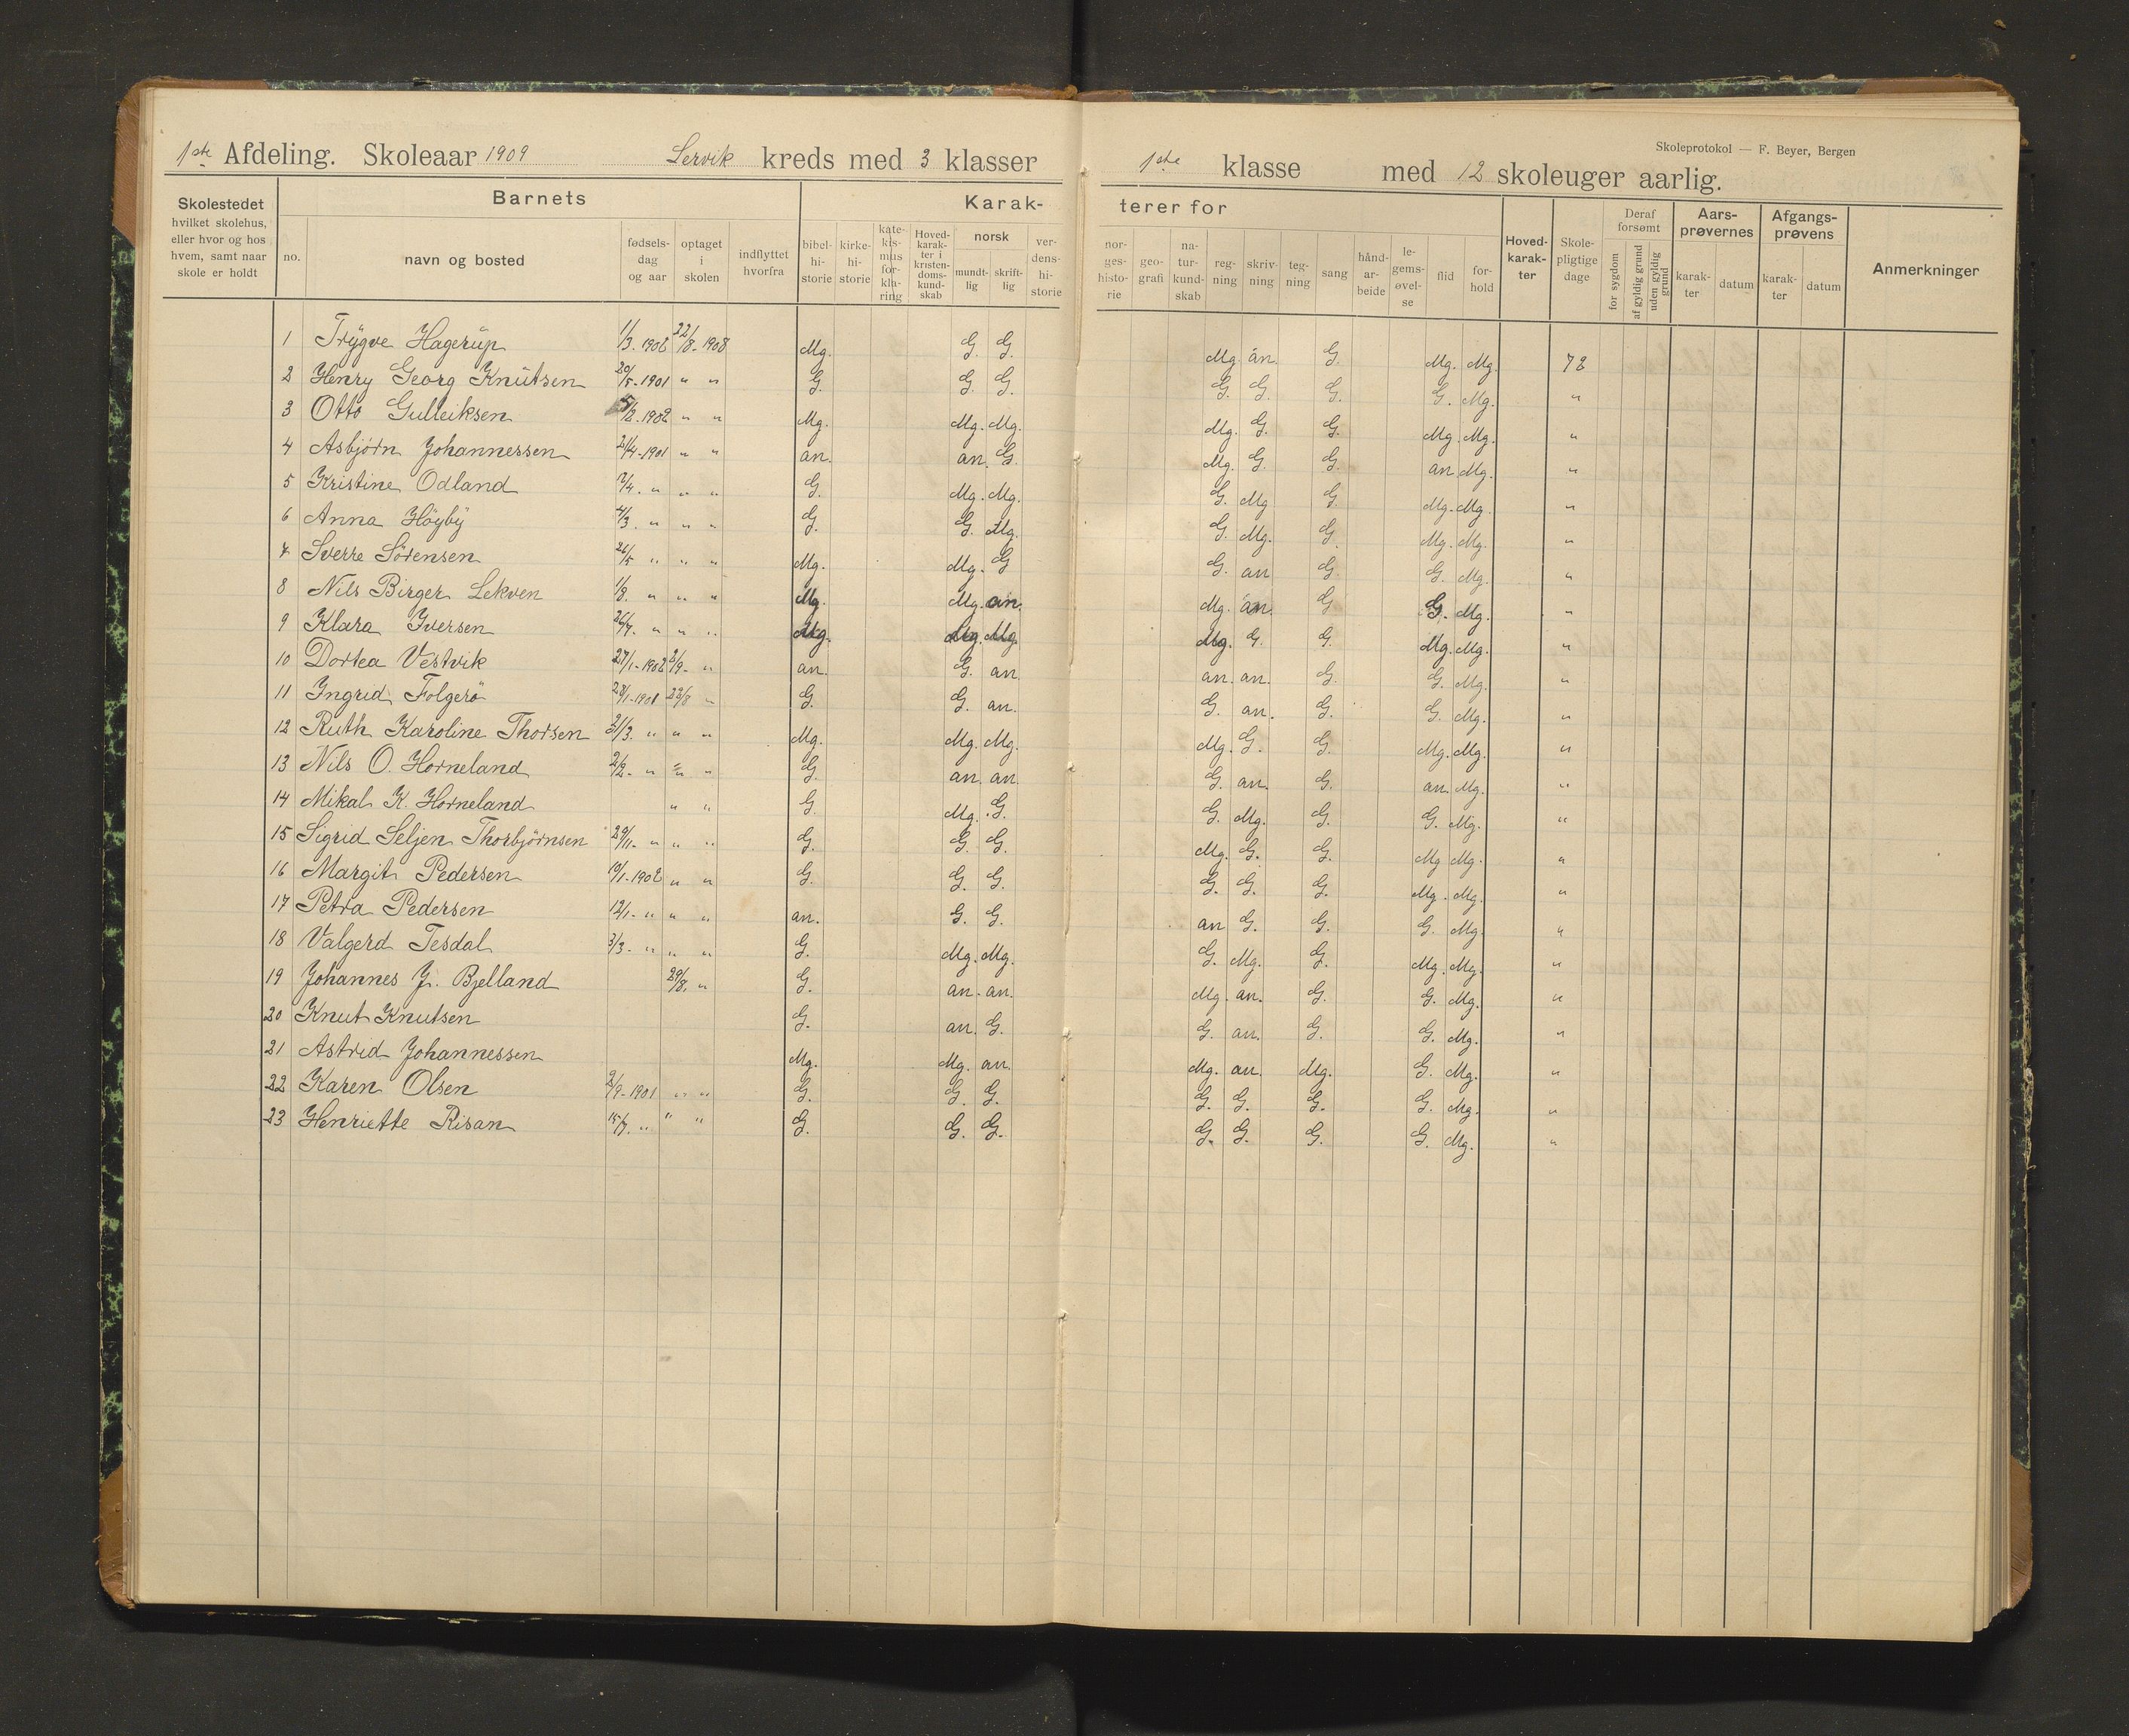 1ste Afdeling. Skoleaar 1909 Lervik kreds med 3 klasser
1ste klasse med 12 skoleuger aarlig.
Skoleprotokol — F. Beyer, Bergen
Skolestedet hvilket skolehus, eller hvor og hos hvem, samt naar skole er holdt
Barnets
no. navn og bosted fødsels- dag og aar optaget i skolen indflyttet hvorfra
Karak- terer for
bibel- hi- storie kirke- hi- storie kate- kis- mus for- kla- ring Hoved- karak- ter i kristen- doms- kund- skab norsk mundt- lig skrift- lig ver- dens- hi- storie
nor- ges- histo- rie geo- grafi na- tur- kund- skab reg- ning skriv- ning teg- ning sang hånd- ar- beide le- gems- øvel- se flid for- hold
Hoved- karak- ter Skole- pligtige dage Deraf forsømt for sygdom af gyldig grund uden gyldig grund
Aars- prøvernes karak- ter datum Afgangs- prøvens karak- ter datum Anmerkninger
1 Trygve Hagerup 1/3. 1902 22/8. 1908 Mg. G. G. Mg. an. G. Mg. Mg. 72
2 Henry Georg Knutsen 20/5-1901 " " G. G. G. G. G. G. G. Mg. "
3 Otto Gulleiksen /2. 1902 " " Mg. Mg. Mg. Mg. G. G. Mg. Mg. "
4 Asbjørn Johannessen 21/4-1901 " " an. an. G. Mg. G. G. an. Mg. "
5 Kristine Odland /4. " " " G. Mg. Mg. G. Mg G. Mg. Mg. "
6 Anna Høyby 4/3. " " " G. G. Mg. G. Mg. G. Mg. Mg. "
7 Sverre Sørensen 26/5 " " " Mg. Mg. G G. an G. G. Mg. "
8 Nils Birger Lekven 1/8. " " " Mg. Mg. an. Mg. an. G G. Mg. "
9 Klara Iversen 26/7. " " " Mg. Mg. Mg. Mg. G. G. Mg. Mg. "
10 Dortea Vestvik 27/1-1902 2/9- " an. G. an an. an. G. G. Mg. "
11 Ingrid Folgerø 28/1-1901 22/8 " G. G. an. G. an. G. G. Mg. "
12 Ruth Karoline Thorsen 21/3. " " " Mg. Mg. Mg. Mg. G. G. Mg. Mg. "
13 Nils O. Horneland 2/2- " " " G. an. an. G. an. G. an. Mg. "
14 Mikal K. Horneland " " G. Mg. G. G. Mg. G. G. Mg. "
15 Sigrid Seljen Thorbjørnsen 29/11- " " " G. G. G. Mg. G. G. Mg Mg. "
16 Margit Pedersen 19/1-1902 " " G. G. G. G. G. G. Mg. Mg. "
17 Petra Pedersen 12/1- " " " an. G. G. an G. G. G. Mg. "
18 Valgerd Tesdal 3/3- " " " G. Mg. Mg. G. Mg. G. Mg. Mg. "
19 Johannes J. Bjelland 29/8. " G. an. an. Mg. an. G. G. Mg. "
20 Knut Knutsen G. an. G. G. an. G. G. Mg. "
21 Astrid Johannessen Mg. Mg. an. Mg. an. Mg. G. Mg. "
22 Karen Olsen 2/9-1901 " " G. G. G. G. G. G. G. Mg. "
23 Henriette Risan 15/7. " " " G. G. G. G. G. G. G. Mg. "